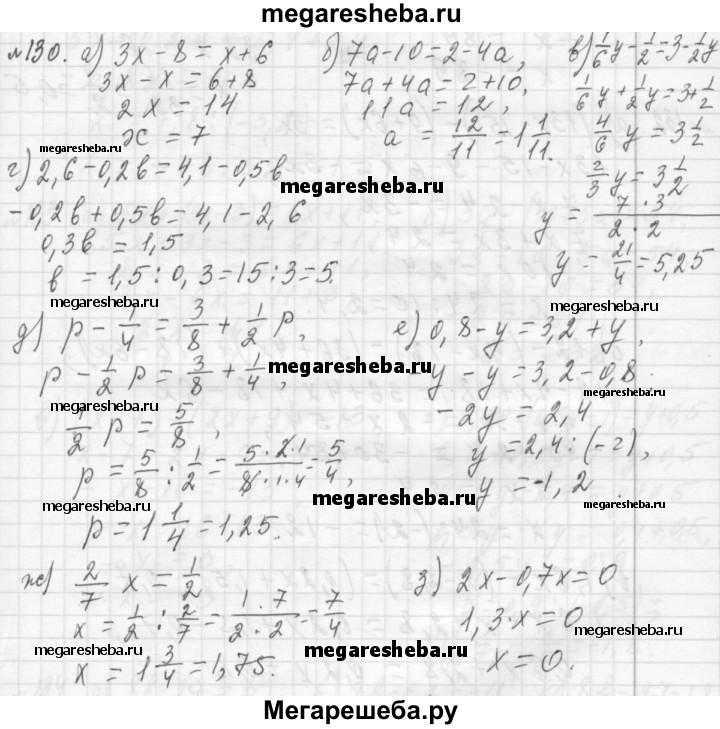 megaresheba.ru
№130. а) 3x - 8 = x + 6
3x - x = 6 + 8
2x = 14
x = 7
б) 7a - 10 = 2 - 4a,
7a + 4a = 2 + 10,
11a = 12,
a = 12/11 = 1 1/11.
в) 1/6 y - 1/2 = 3 - 1/2 y
1/6 y + 1/2 y = 3 + 1/2
4/6 y = 3 1/2
2/3 y = 3 1/2
y = (7 · 3)/(2 · 2)
y = 21/4 = 5,25
megaresheba.ru
г) 2,6 - 0,2в = 4,1 - 0,5в
megaresheba.ru
-0,2в + 0,5в = 4,1 - 2,6
0,3в = 1,5
в = 1,5 : 0,3 = 15 : 3 = 5.
megaresheba.ru
megaresheba.ru
megaresheba.ru
д) p - 1/4 = 3/8 + 1/2 p,
p - 1/2 p = 3/8 + 1/4,
megaresheba.ru
1/2 p = 5/8,
megaresheba.ru
p = 5/8 : 1/2 = (5 · 2 · 1)/(8 · 1 · 4) = 5/4,
p = 1 1/4 = 1,25.
е) 0,8 - y = 3,2 + y,
-y - y = 3,2 - 0,8.
megaresheba.ru
-2y = 2,4
y = 2,4 : (-2),
y = -1,2
megaresheba.ru
megaresheba.ru
megaresheba.ru
ж) 2/7 x = 1/2
x = 1/2 : 2/7 = (1 · 7)/(2 · 2) = 7/4
x = 1 3/4 = 1,75.
з) 2x - 0,7x = 0
1,3·x = 0
x = 0.
megaresheba.ru
megaresheba.ru
megaresheba.ru
Мегарешеба.ру